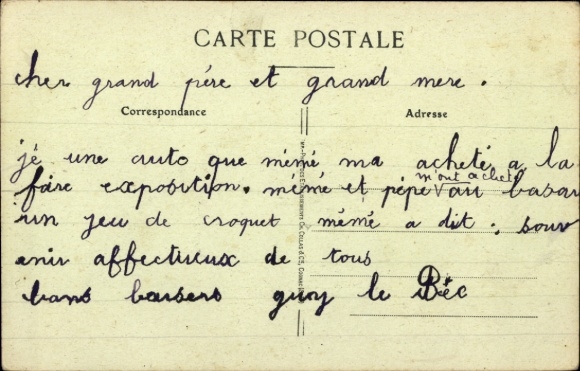 CARTE POSTALE
cher grand père et grand mere.
Correspondance
Adresse
jé une auto que mémé ma acheté a la
foire exposition. mémé et pépé m'ont acheté au basar
un jeu de croquet mémé a dit: souv
enir affectueux de tous
bons baisers guoy le Béc